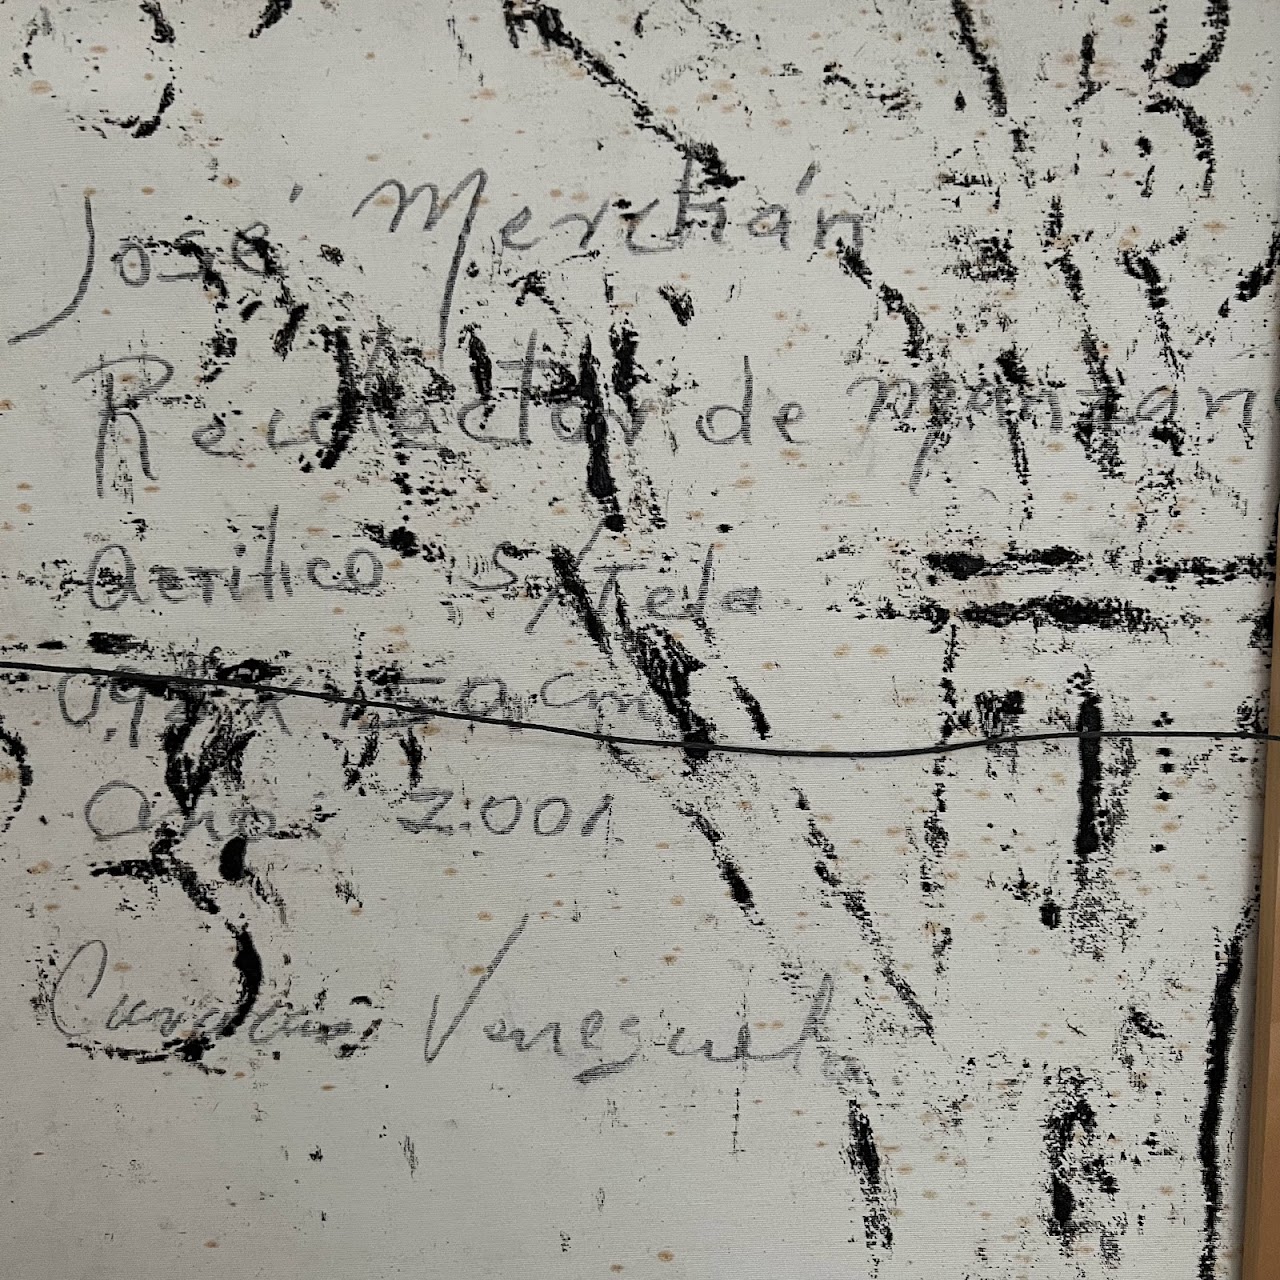 José Merchán
Recolector de
Acrílico s/tela
cm
Año: 2.001
Caracas Venezuela